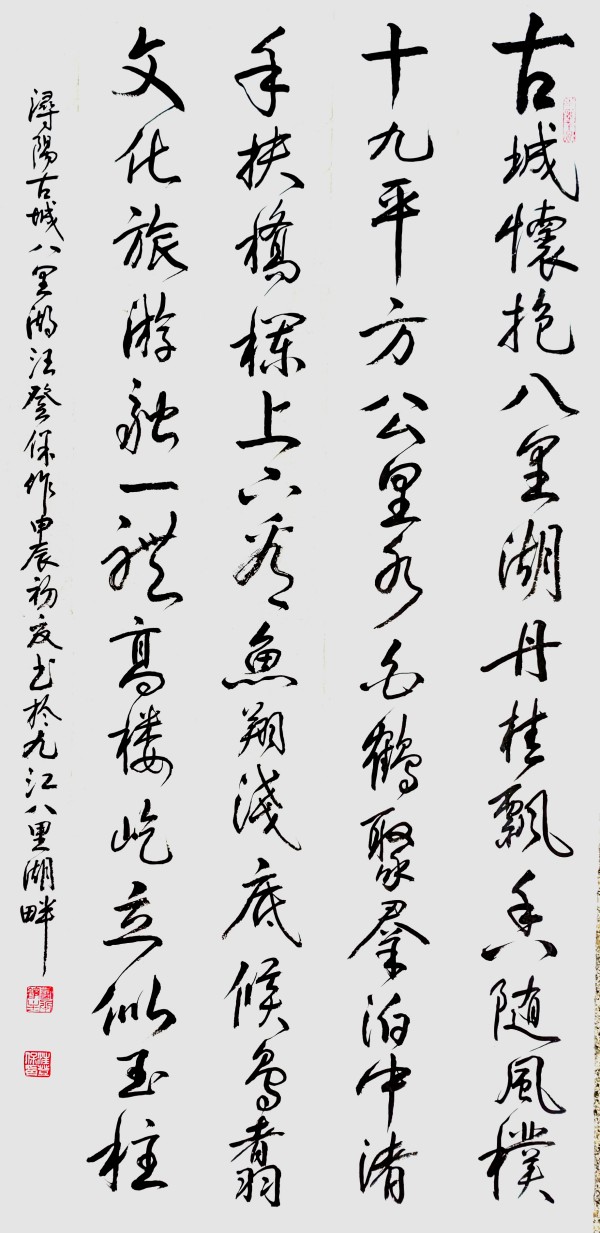 古城懷抱八里湖丹桂飄香隨風樸
十九平方公里水白鶴聚羣泊中渚
手扶橋欄上下看魚翔淺底候鳥翥
文化旅游融一體高樓屹立似玉柱
潯陽古城八里湖汪登保作甲辰初夏書於九江八里湖畔